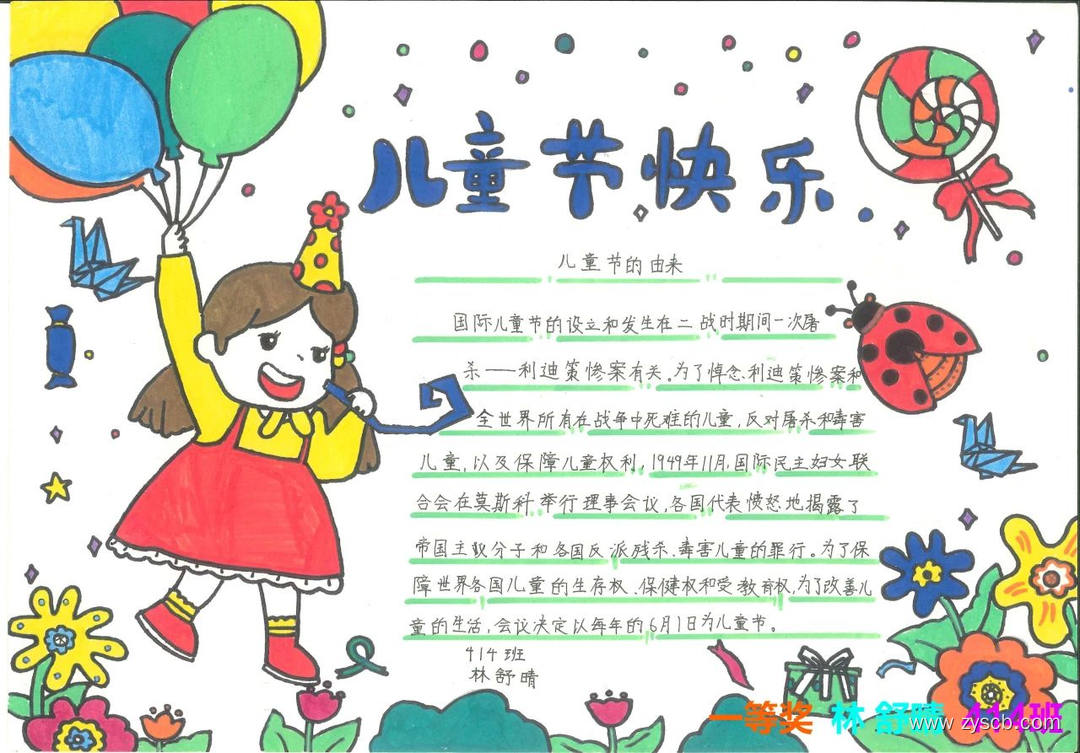 儿童节快乐
儿童节的由来
国际儿童节的设立和发生在二战时期间一次屠
杀——利迪策惨案有关。为了悼念利迪策惨案和
全世界所有在战争中死难的儿童，反对屠杀和毒害
儿童，以及保障儿童权利，1949年11月，国际民主妇女联
合会在莫斯科举行理事会议，各国代表愤怒地揭露了
帝国主义分子和各国反派残杀、毒害儿童的罪行。为了保
障世界各国儿童的生存权、保健权和受教育权，为了改善儿
童的生活，会议决定以每年的6月1日为儿童节。
414班
林舒晴
一等奖 林舒晴 414班
www.zyscb.com